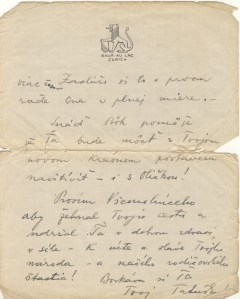 BAUR AU LAC
ZURICH
viac Zaslúžiš si to a pracuj
rada Ona v plnej miere.–
Snáď Boh pomôže
a Ťa bude môcť v Tvojom
novom krásnom postavení
navštíviť – i s Oličkou!
Prosím Všemohúceho
aby žehnal Tvojej ceste a
udržal Ťa v dobrom zdraví
a sile – K úcte a sláve Tvojho
národa – a nášho rodičovského
šťastia! Bozkáva si Ťa
Tvoj Tatuško!